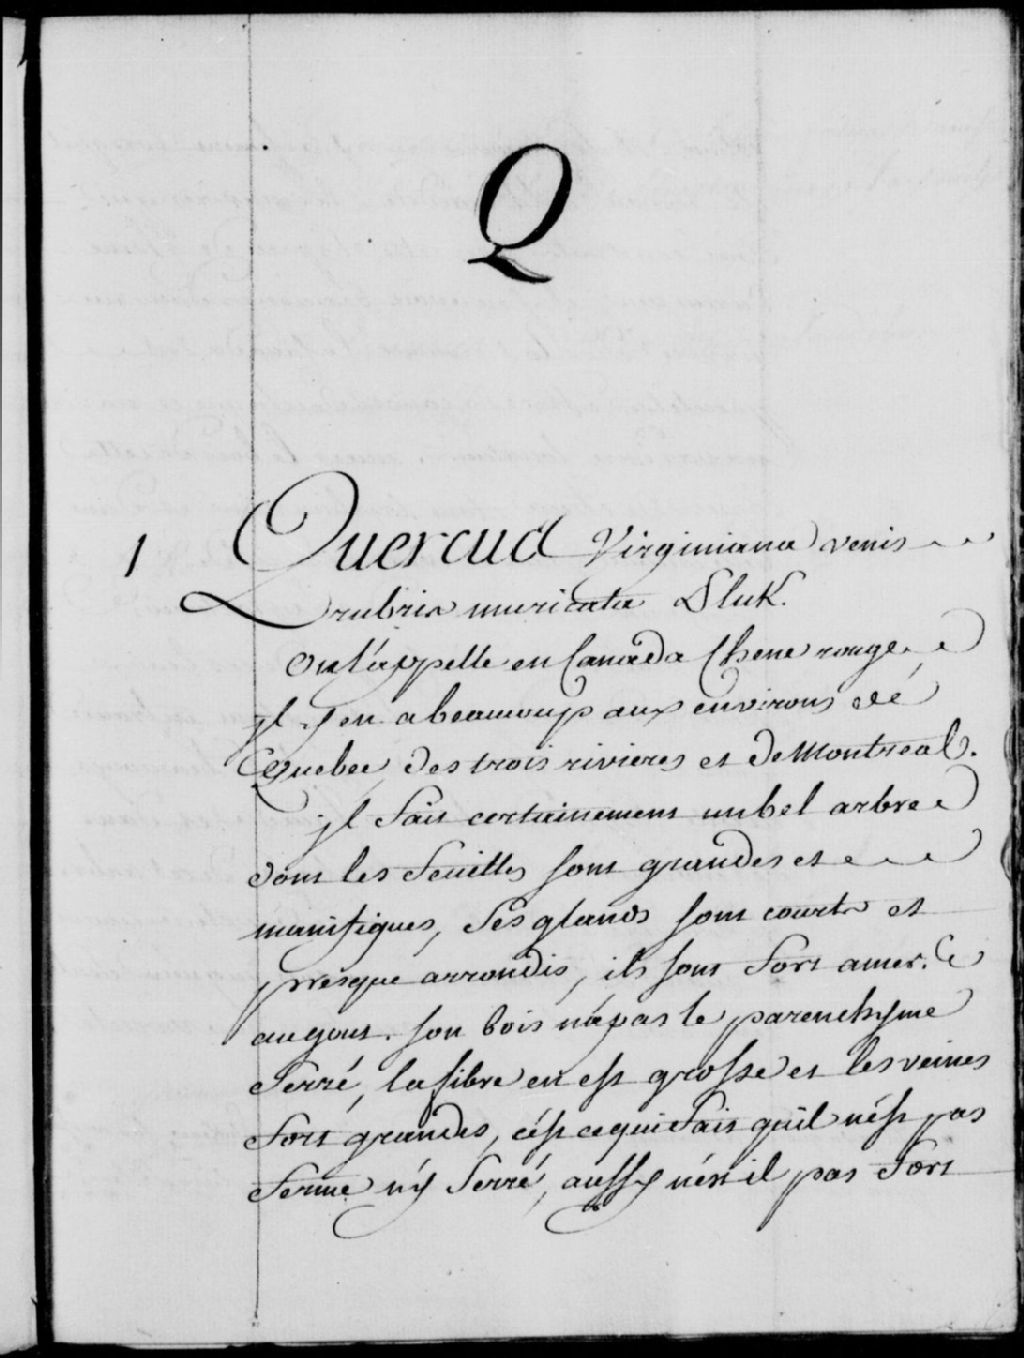 Q
1 Quercus Virginiana venis
rubris muricata Pluk.
On l'appelle en Canada Chene rouge
jl y en a beaucoup aux environs de
Quebec des trois rivieres et de Montreal.
jl fait certainement un bel arbre
dont les feuilles sont grandes et
manifiques, ses glands sont courts et
presque arrondis, ils sont fort amer.
au gout. son bois n'a pas le parenchyme
serré, la fibre en est grosse et les veines
fort grandes, c'est ce qui fait qu'il n'est pas
ferme n'y serré, aussy n'est il pas fort